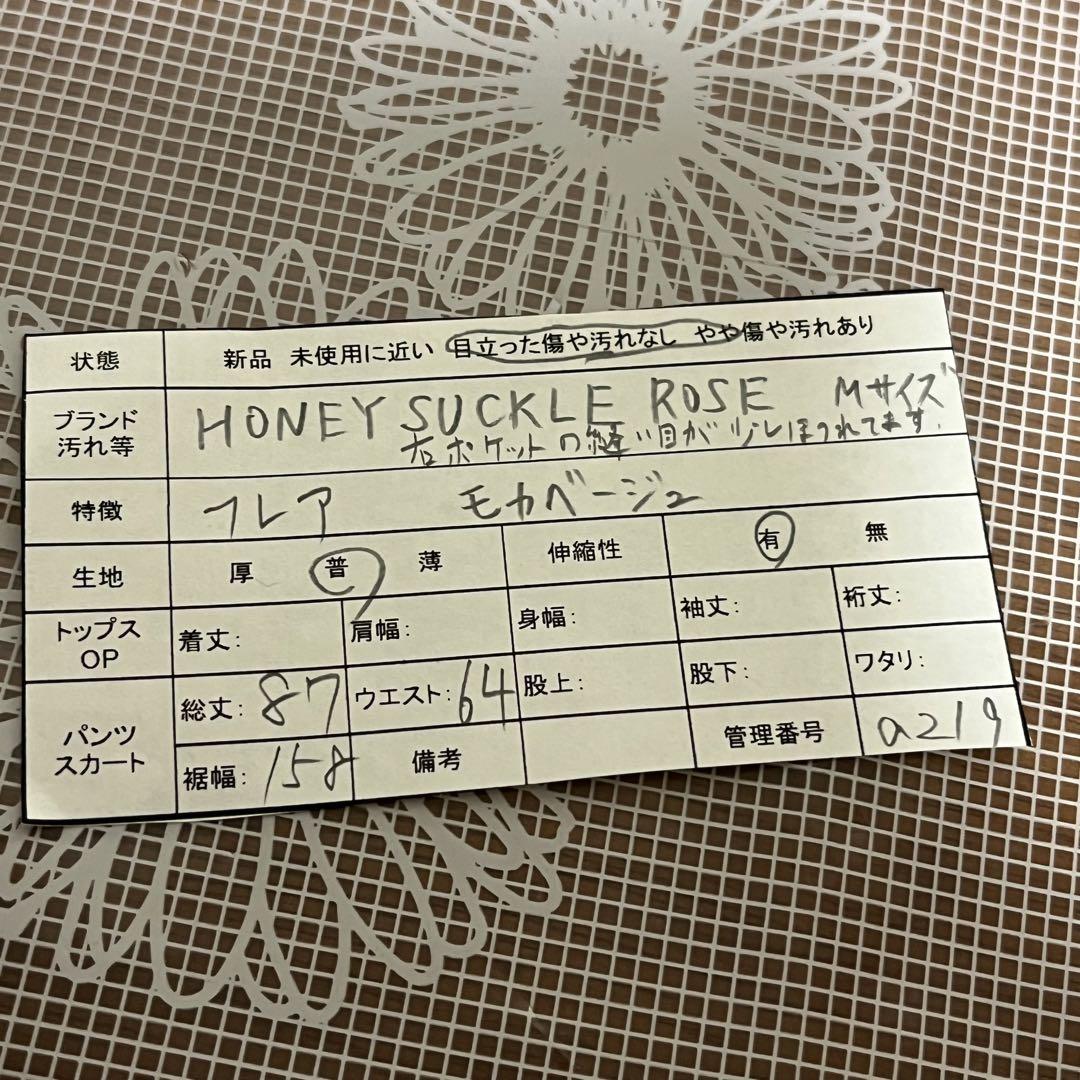 状態 新品 未使用に近い 目立った傷や汚れなし やや傷や汚れあり
ブランド 汚れ等 HONEY SUCKLE ROSE Mサイズ
右ポケットの縫い目が少しほつれてます.
特徴 フレア モカベージュ
生地 厚 普 薄 伸縮性 有 無
トップス OP 着丈: 肩幅: 身幅: 袖丈: 裄丈:
パンツ スカート 総丈: 87 ウエスト: 64 股上: 股下: ワタリ:
裾幅: 158 備考 管理番号 a219